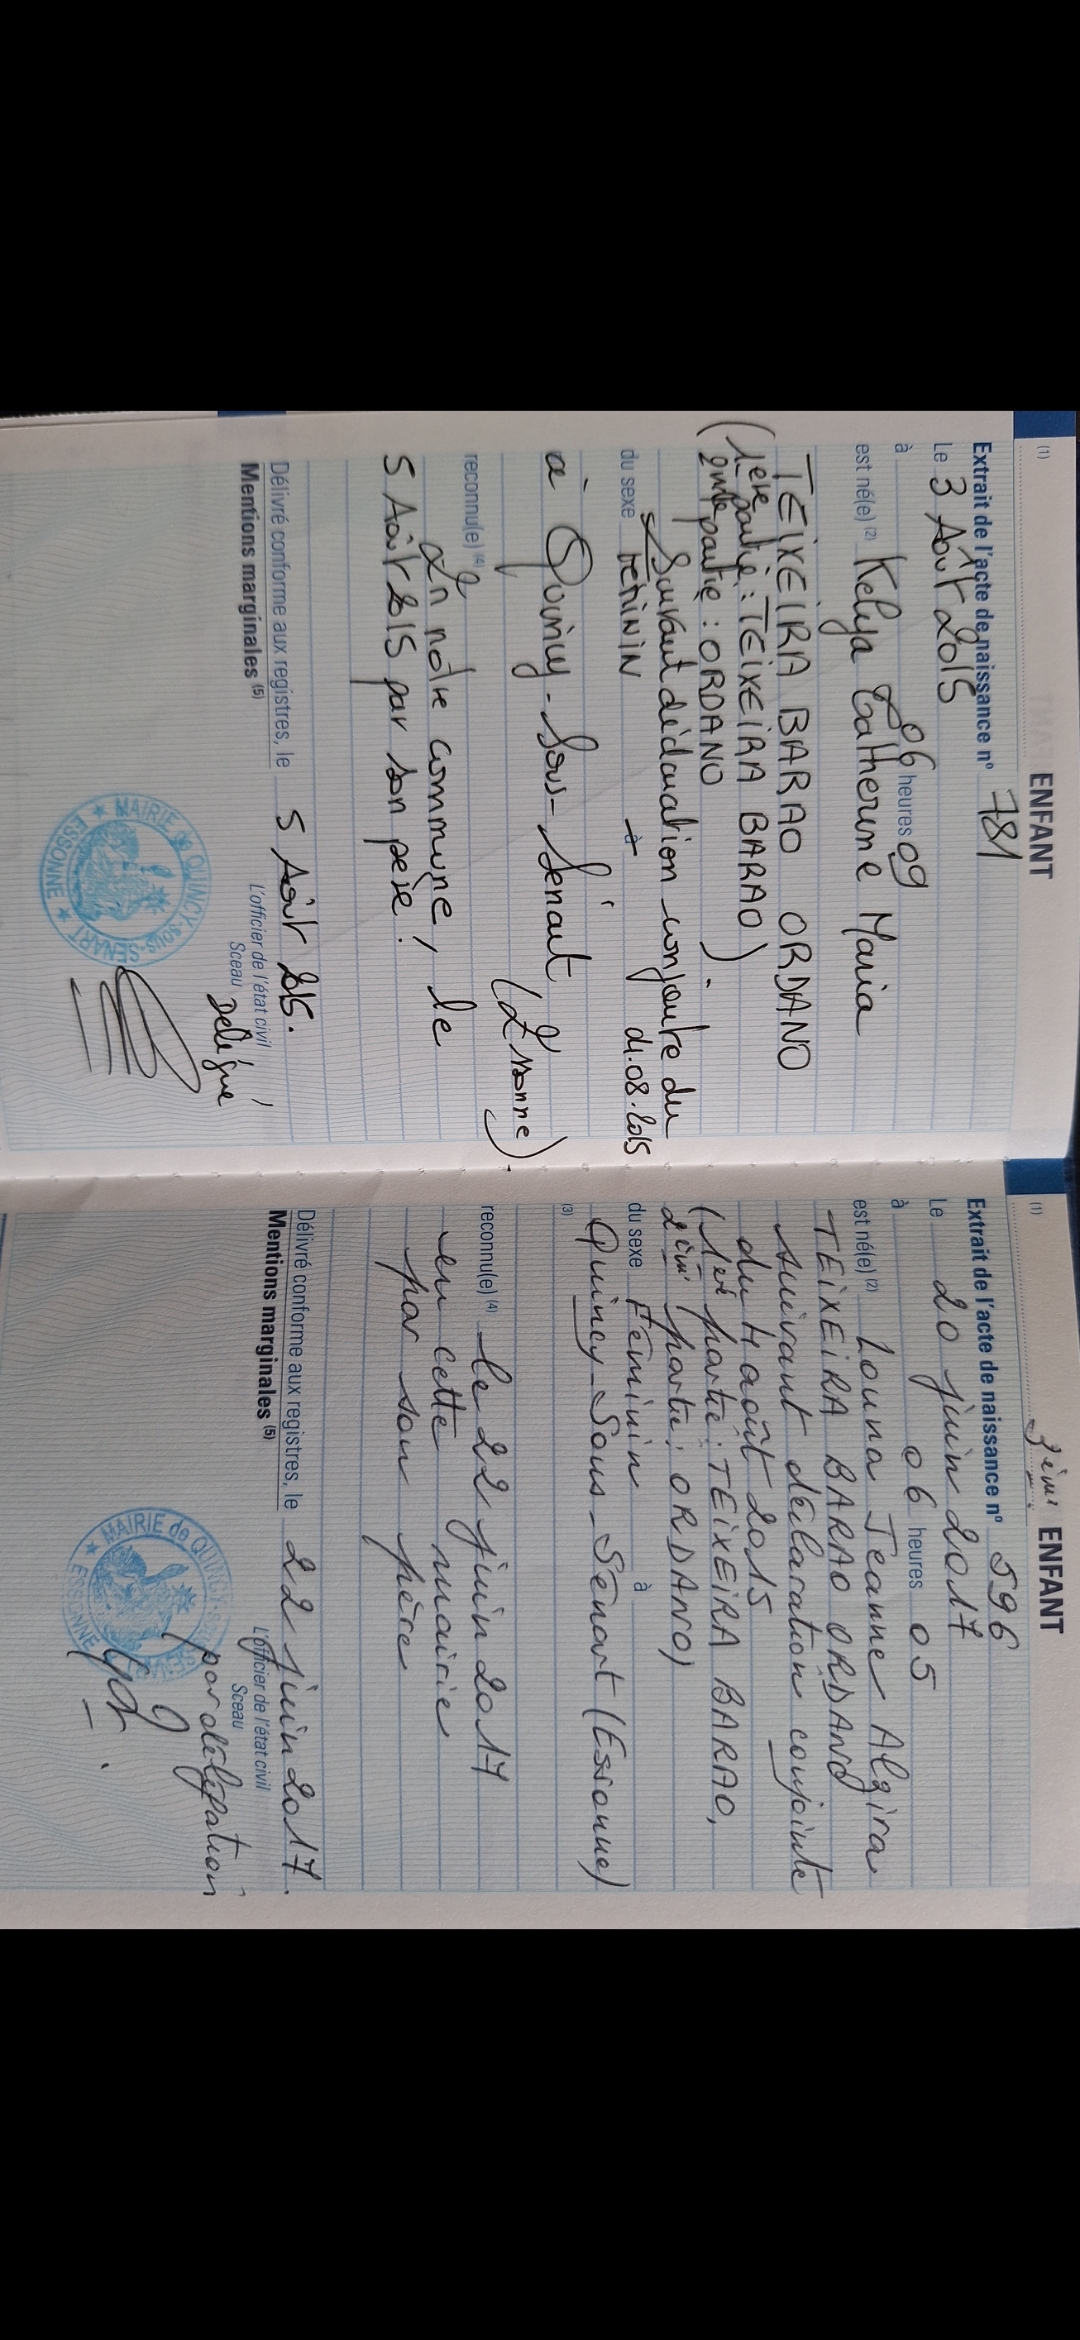 (1) ENFANT
Extrait de l'acte de naissance n° 781
Le 3 Août 2015
à 06 heures 09
est né(e) (2) Kelya Catherine Maria
TEIXEIRA BARAO ORDANO
(1ère partie : TEIXEIRA BARAO)
2nde partie : ORDANO
Suivant déclaration conjointe du
du sexe FEMININ à 04.08.2015
à Quincy-Sous-Sénart
(Essonne).
reconnu(e) (4)
En notre commune, le
5 Août 2015 par son père.
Délivré conforme aux registres, le 5 Août 2015.
Mentions marginales (5)
L'officier de l'état civil
Sceau Délégué
MAIRIE de QUINCY-SOUS-SÉNART
★ ESSONNE ★
(1) 3ème ENFANT
Extrait de l'acte de naissance n° 596
Le 20 juin 2017
à 06 heures 05
est né(e) (2) Louna Jeanne Alzira
TEIXEIRA BARAO ORDANO
suivant déclaration conjointe
du 4 août 2015
(1ère partie : TEIXEIRA BARAO,
2ème partie : ORDANO)
du sexe Féminin à
Quincy-Sous-Sénart (Essonne)
(3)
reconnu(e) (4) le 22 juin 2017
en cette mairie
par son père
Délivré conforme aux registres, le 22 juin 2017.
Mentions marginales (5)
L'officier de l'état civil
Sceau
par délégation
MAIRIE de QUINCY-SOUS-SÉNART
★ ESSONNE